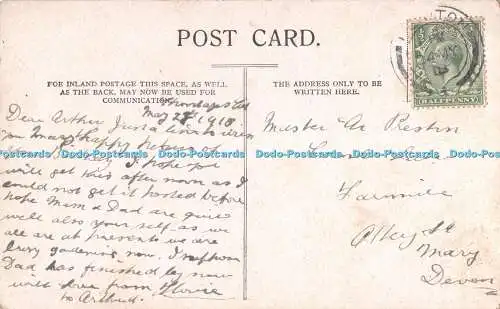 POST CARD.
FOR INLAND POSTAGE THIS SPACE, AS WELL
AS THE BACK, MAY NOW BE USED FOR
COMMUNICATION.
THE ADDRESS ONLY TO BE
WRITTEN HERE.
HALFPENNY
May 28th 1918
Dear Arthur Just a line to wish
you Many happy returns of
the Birthday I hope you
will get this afternoon as I
could not get it posted before
hope Mum & Dad are quite
well also your self as we
all are at present we are
busy gardening now. I
Dad has finished by now
with love from
to Arthur
Master A. Preston
Fairmile
Ottery St
Mary
Devon
Postcards Online Postcards Online Postcards Online Postcards Online Postcards Online